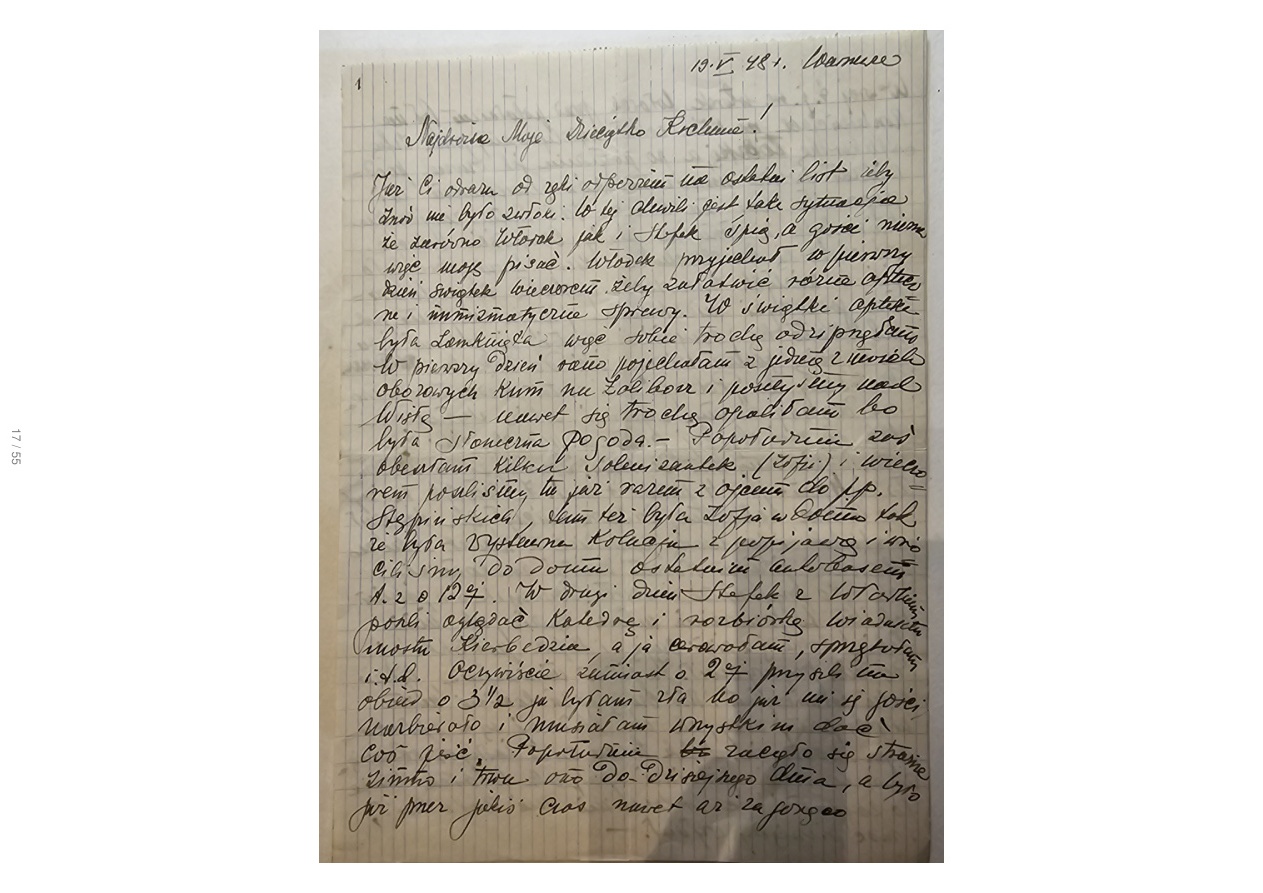 1
19.V 48 r. Warszawa
Najdroższe Moje Dzieciątko Kochane!
Już Ci odrazu od ręki odpiszę na ostatni list żeby
znów nie było zwłoki. W tej chwili jest taka sytuacja
że zarówno Włodek jak i Stefek śpią, a gości niema
więc mogę pisać. Włodek przyjechał w pierwszy
dzień świątek wieczorem żeby załatwić różne aptecz
ne i numizmatyczne sprawy. W świątki apteka
była zamknięta więc sobie trochę odsapnęłam
W pierwszy dzień rano pojechałam z jedną z
obozowych kum na Żoliborz i poszłyśmy nad
Wisłę — nawet się trochę opaliłam bo
była słoneczna pogoda. — Popołudniu zaś
obeszłam kilka solenizantek (Zofji) i wieczo=
rem poszliśmy tu już razem z ojcem do pp.
Stępińskich, tam też była Zofja w domu tak
że była wystawna kolacja z popijawą i wró
ciliśmy do domu ostatnim autobusem
t. z o 12ej. W drugi dzień Stefek z Włodkiem
poszli oglądać Katedrę i rozbiórkę wiaduktu
mostu Kierbedzia, a ja cerowałam, sprzątałam
i.t.d. Oczywiście zamiast o 2ej przyszli na
obiad o 3 1/2 ja byłam zła bo już mi się gości
nazbierało i musiałam wszystkim dać
coś zjeść. Popołudniu zaczęło się straszne
zimno i trwa ono do dzisiejszego dnia, a było
już przez jakiś czas nawet aż za gorąco
17 / 55